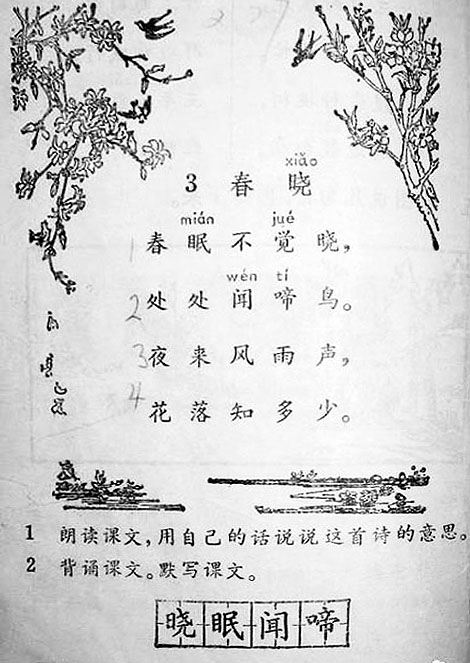 xiǎo
3 春 晓
mián jué
1 春眠不觉晓，
wén tí
2 处处闻啼鸟。
3 夜来风雨声，
4 花落知多少。
1 朗读课文，用自己的话说说这首诗的意思。
2 背诵课文。默写课文。
晓眠闻啼